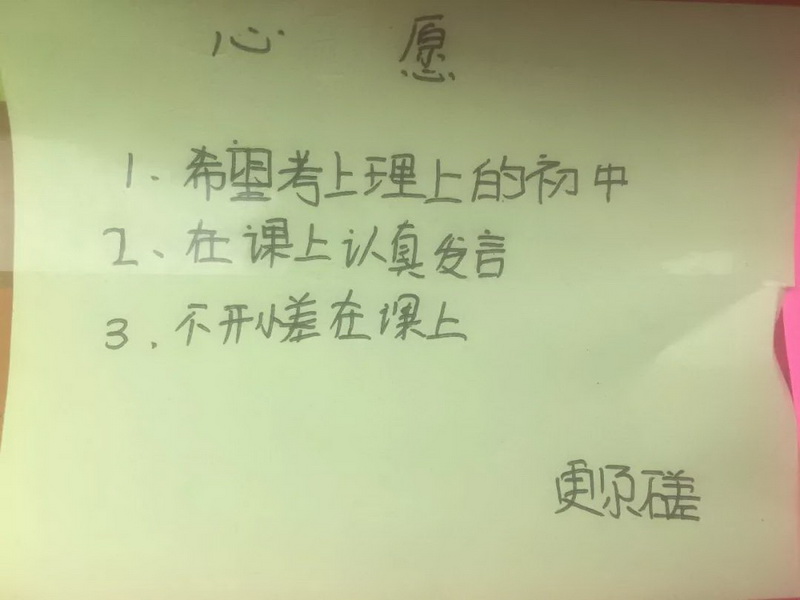 心 愿
1、希望考上理上的初中
2、在课上认真发言
3.不开小差在课上